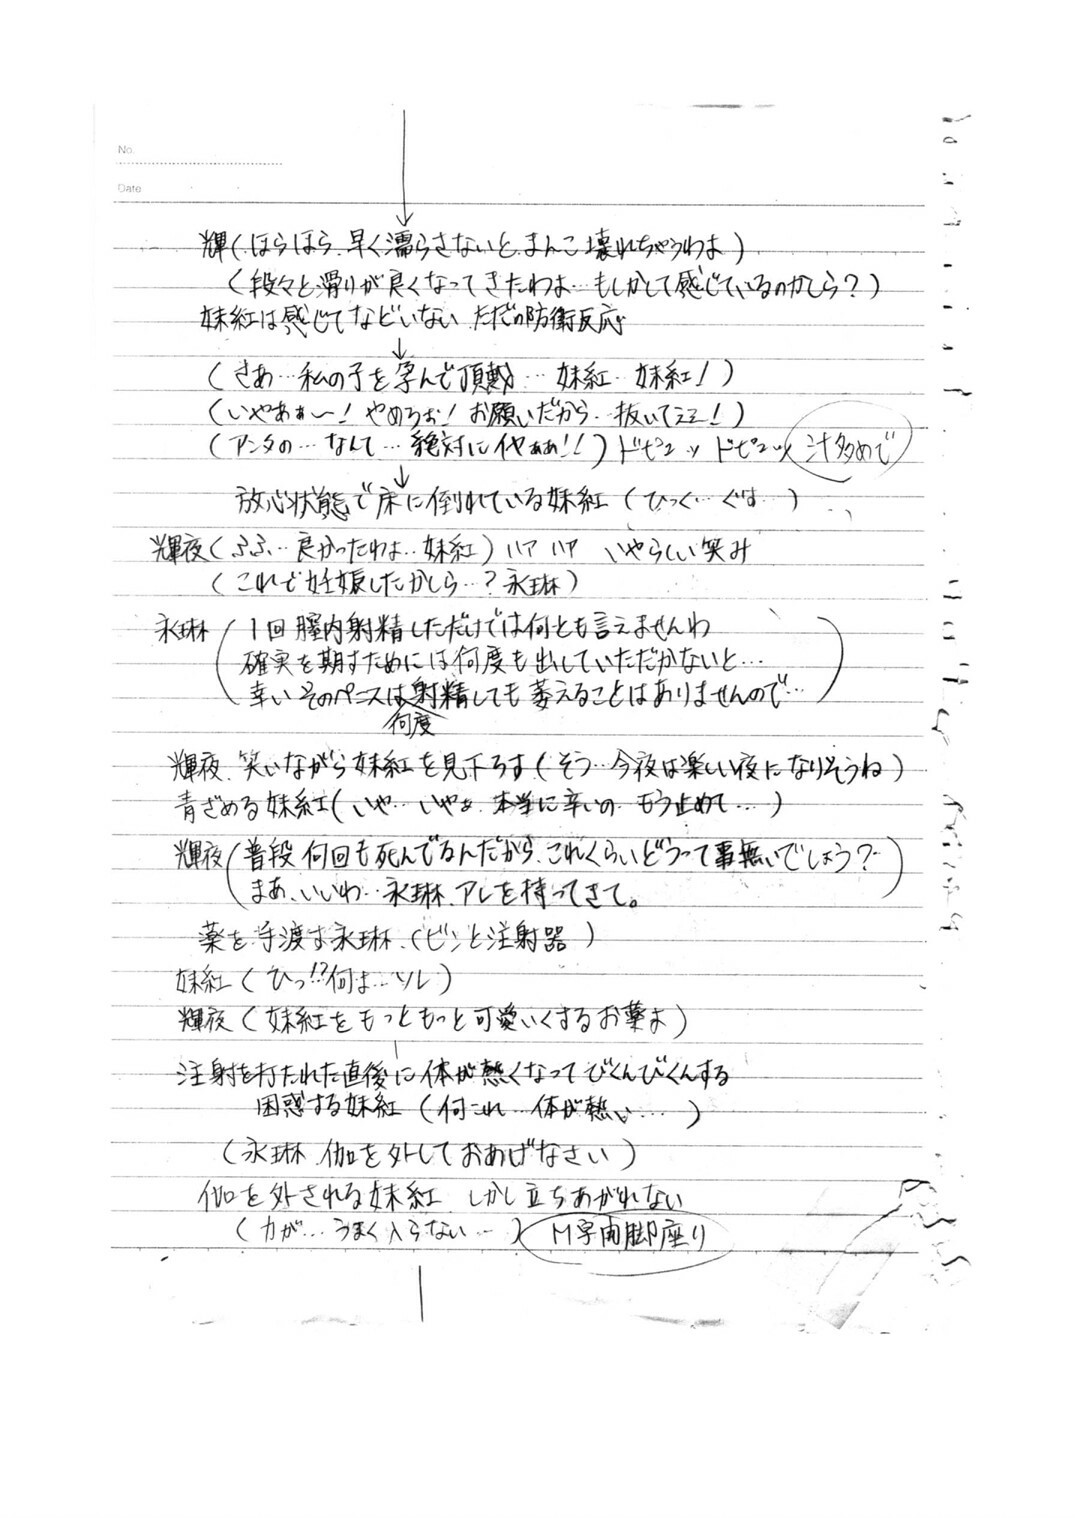 No.
Date
輝(ほらほら、早く濡らさないと、まんこ壊れちゃうわよ)
(段々と滑りが良くなってきたわよ…もしかして感じているのかしら?)
妹紅は感じてなどいない ただの防衛反応
(さあ…私の子を孕んで頂戴…妹紅…妹紅!)
(いやあぁ〜!やめろぉ!お願いだから…抜いてェェ!)
(アンタの…なんて…絶対にイヤぁぁ!!)ドピュッ ドピュッ 汁多めで
放心状態で床に倒れている妹紅(ひっく…ぐす…)
輝夜(ふふ…良かったわよ…妹紅)ハァ ハァ いやらしい笑み
(これで妊娠したかしら…?永琳)
永琳(1回膣内射精しただけでは何とも言えませんわ
確実を期すためには何度も出していただかないと…
幸いそのペニスは何度射精しても萎えることはありませんので…)
輝夜、笑いながら妹紅を見下ろす(そう…今夜は楽しい夜になりそうね)
青ざめる妹紅(いや…いやよ、本当に辛いの、もう止めて…)
輝夜(普段何回も死んでるんだから、これくらいどうって事無いでしょう?
まあ、いいわ…永琳、アレを持ってきて。)
薬を手渡す永琳(ビンと注射器)
妹紅(ひっ!?何よ…ソレ)
輝夜(妹紅をもっともっと可愛いくするお薬よ)
注射を打たれた直後に体が熱くなってびくんびくんする
困惑する妹紅(何これ…体が熱い…)
(永琳、伽を外しておあげなさい)
伽を外される妹紅 しかし立ちあがれない
(力が…うまく入らない…)M字開脚座り